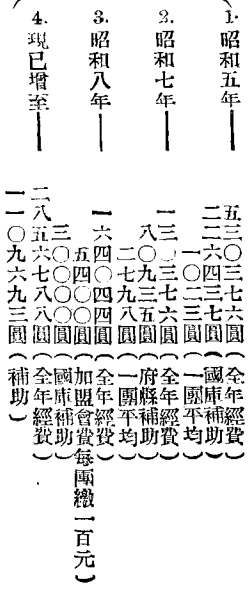 1. 昭和五年——五三〇三七六圓(全年經費)
二二六四三七圓(國庫補助)
一〇二三圓(一團平均)
2. 昭和七年——一三〇三七六圓(全年經費)
八〇九三五圓(府縣補助)
二七九八圓(一團平均)
3. 昭和八年——一六四〇四四圓(全年經費)
五四〇〇圓(加盟會費每團繳一百元)
三〇〇〇〇圓(國庫補助)
4. 現已增至——二八五六七八八圓(全年經費)
一一〇九六九三圓(補助)